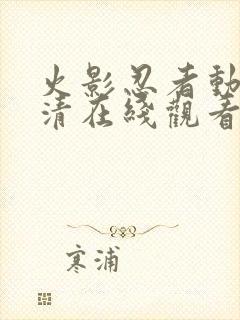 火影忍者動
清在綫觀看
寒浦